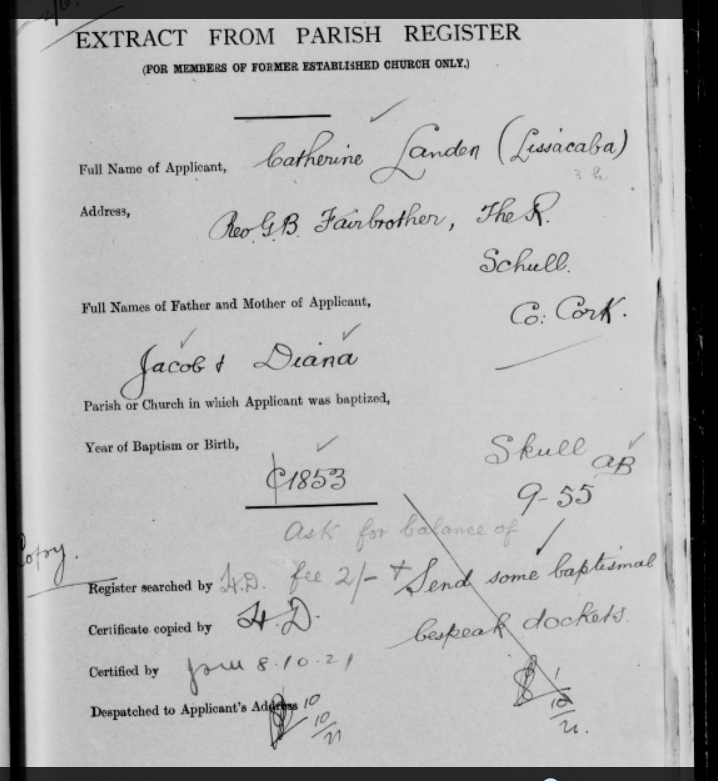 EXTRACT FROM PARISH REGISTER
(FOR MEMBERS OF FORMER ESTABLISHED CHURCH ONLY.)
Full Name of Applicant, Catherine Landen (Lissacaba)
Address, Rev. G.B. Fairbrother, The R.
Schull.
Full Names of Father and Mother of Applicant, Co: Cork.
Jacob & Diana
Parish or Church in which Applicant was baptized,
Year of Baptism or Birth, Skull aB
C1853 9-55
Ask for balance of
Copy.
Register searched by H.D. fee 2/- + Send some baptismal
Certificate copied by H.D. bespeak dockets.
Certified by 8.10.21
Despatched to Applicant's Address 10/10/21